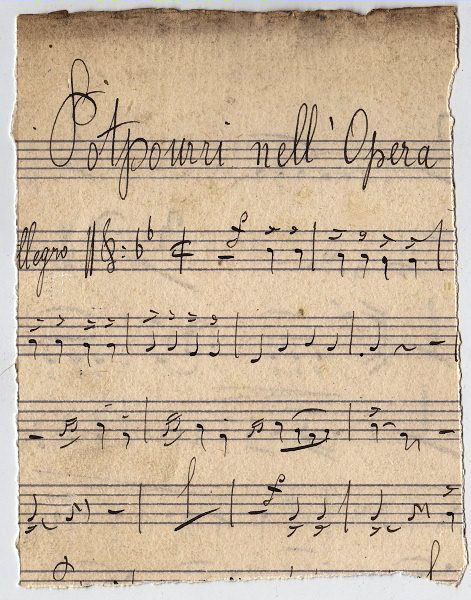 Potpourri nell' Opera
llegro